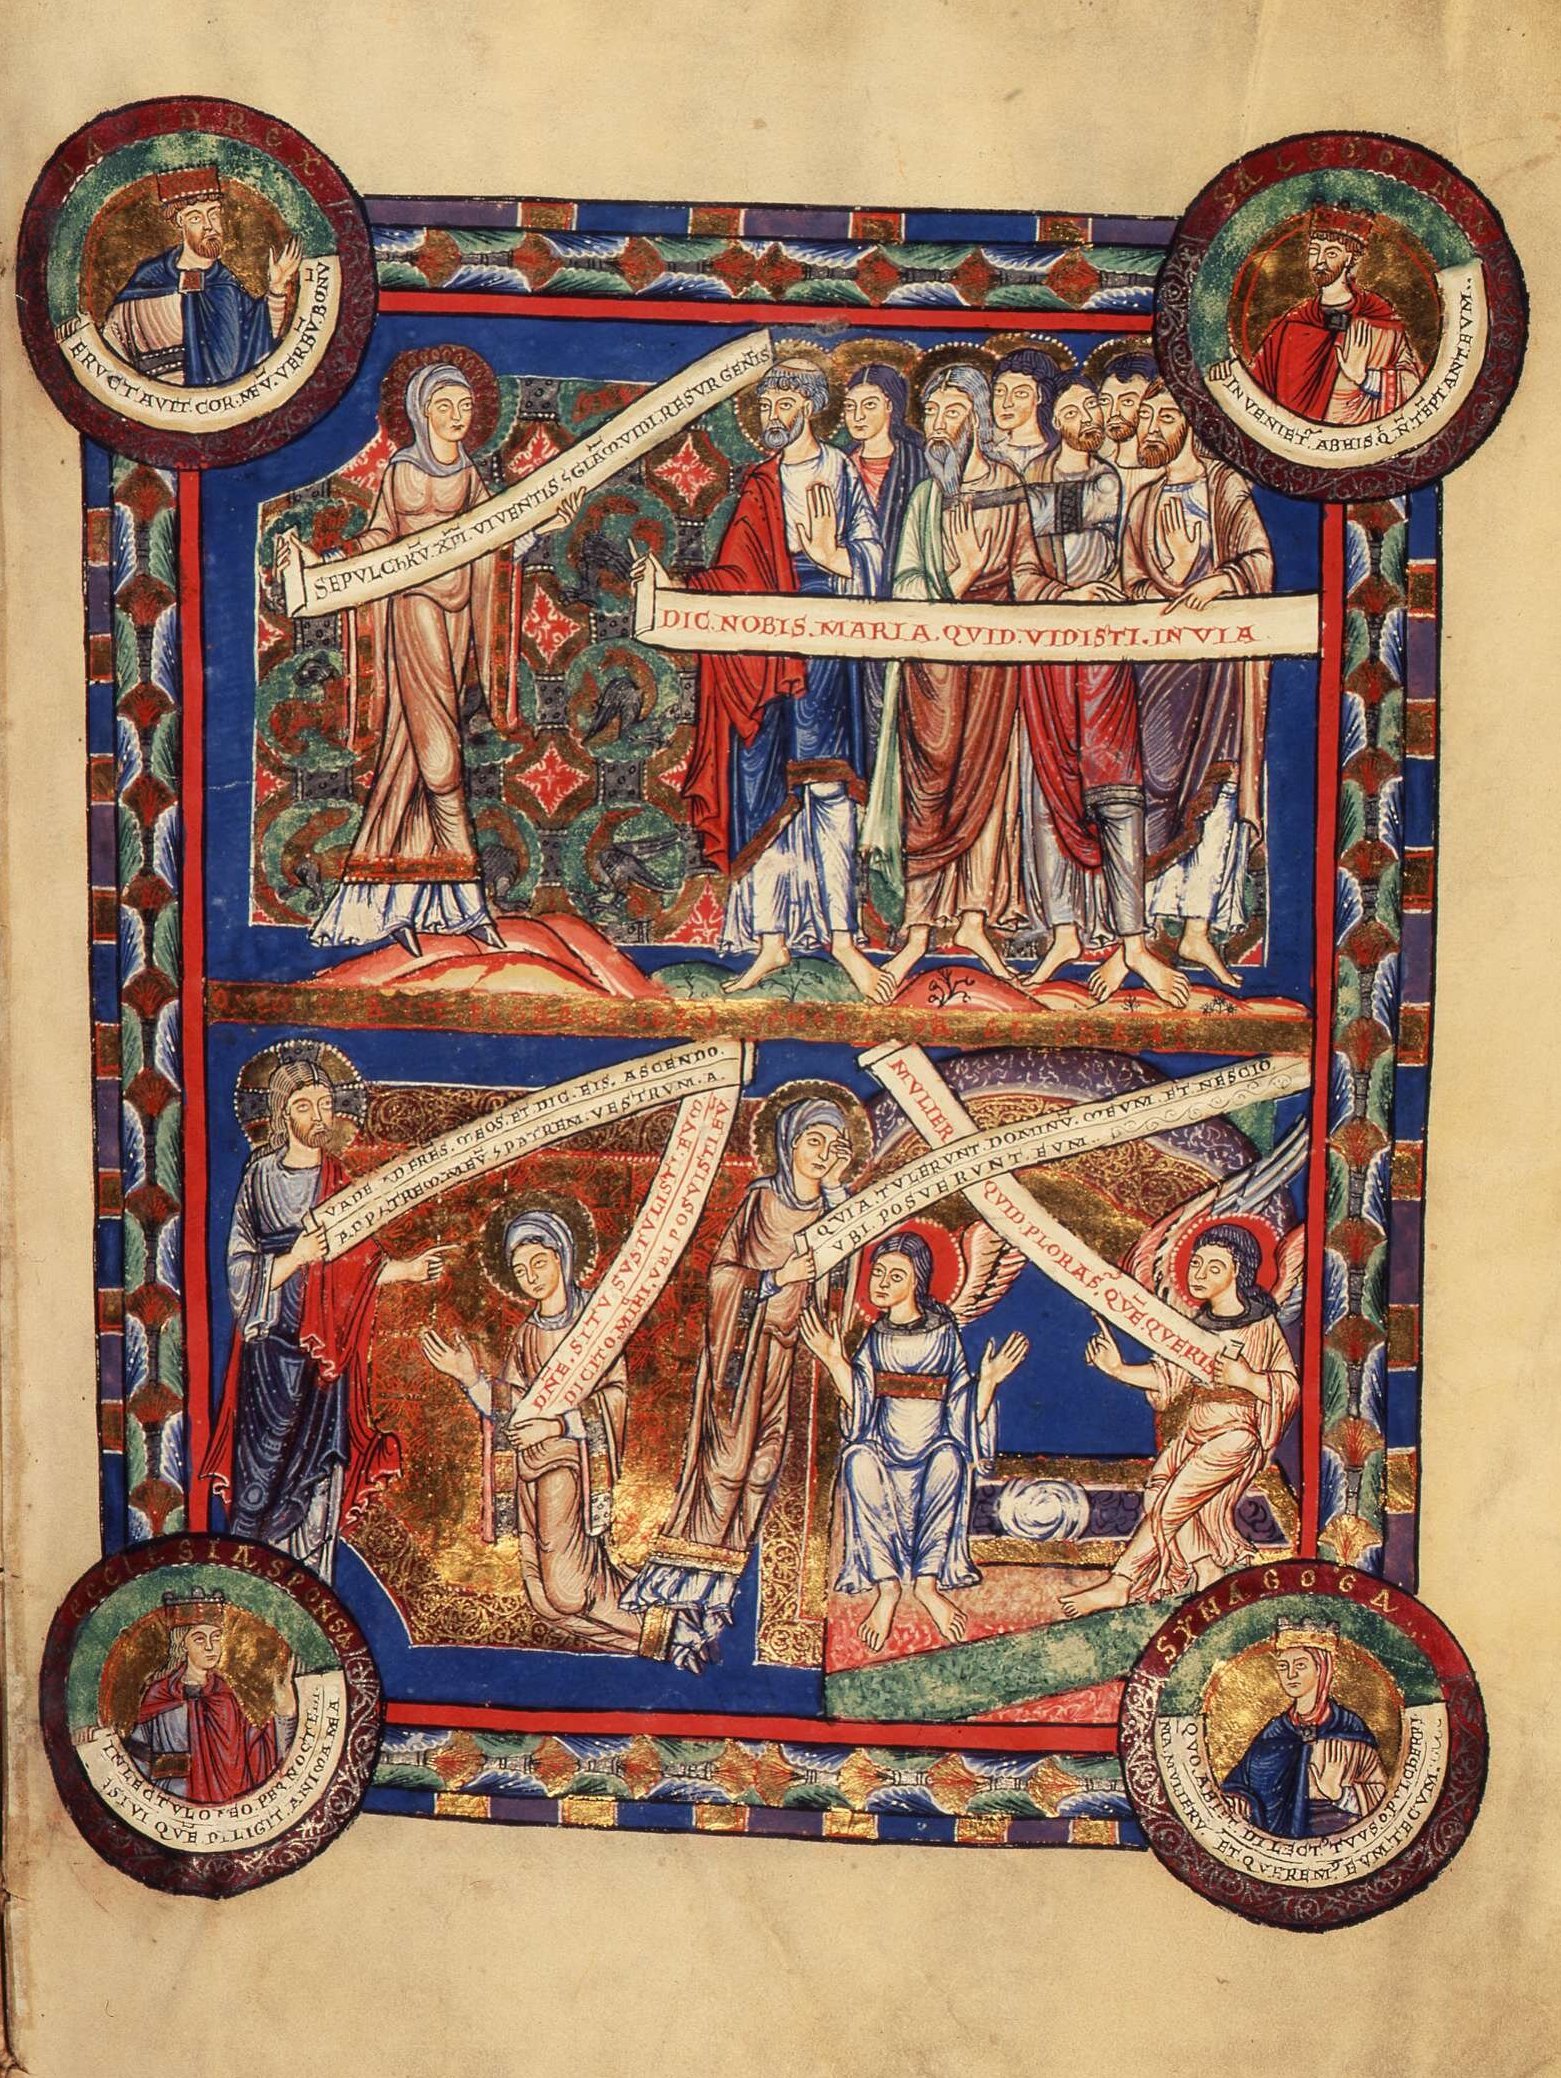 DAVID REX
ERVCTAVIT. COR. MEV̄. VERBV̄. BONV̄
SALEMON
INVENIET̄. AB HIS. Q̄. N̄. TĒPTANT. EVM..
SEPVLCHRV̄. XP̄I. VIVENTIS. ⁊ GLĀM VIDI. RESVRGENTIS
DIC. NOBIS. MARIA. QVID. VIDISTI. IN VIA
VADE AD FRĒS. MEOS. ET DIC. EIS. ASCENDO.
AD PATREM. MEV̄ ⁊ PATREM. VESTRVM. A.
DN̄E. SI TV. SVSTVLISTI. EVM
DICITO. MIHI. VBI POSVISTI EV̄
MVLIER QVID. PLORAS. QVĒ QVERIS
QVIA TVLERVNT. DOMINV̄. MEVM. ET NESCIO
VBI. POSVERVNT. EVM..
ECCLESIA SPONSA
IN LECTVLO MEO. PER NOCTE
QVĒ DILIGIT. ANIMA MEA
SYNAGOGA..
QVO ABIIT DILECT᾽. TVVS
ET QVEREM᾽. EVM. TECVM.